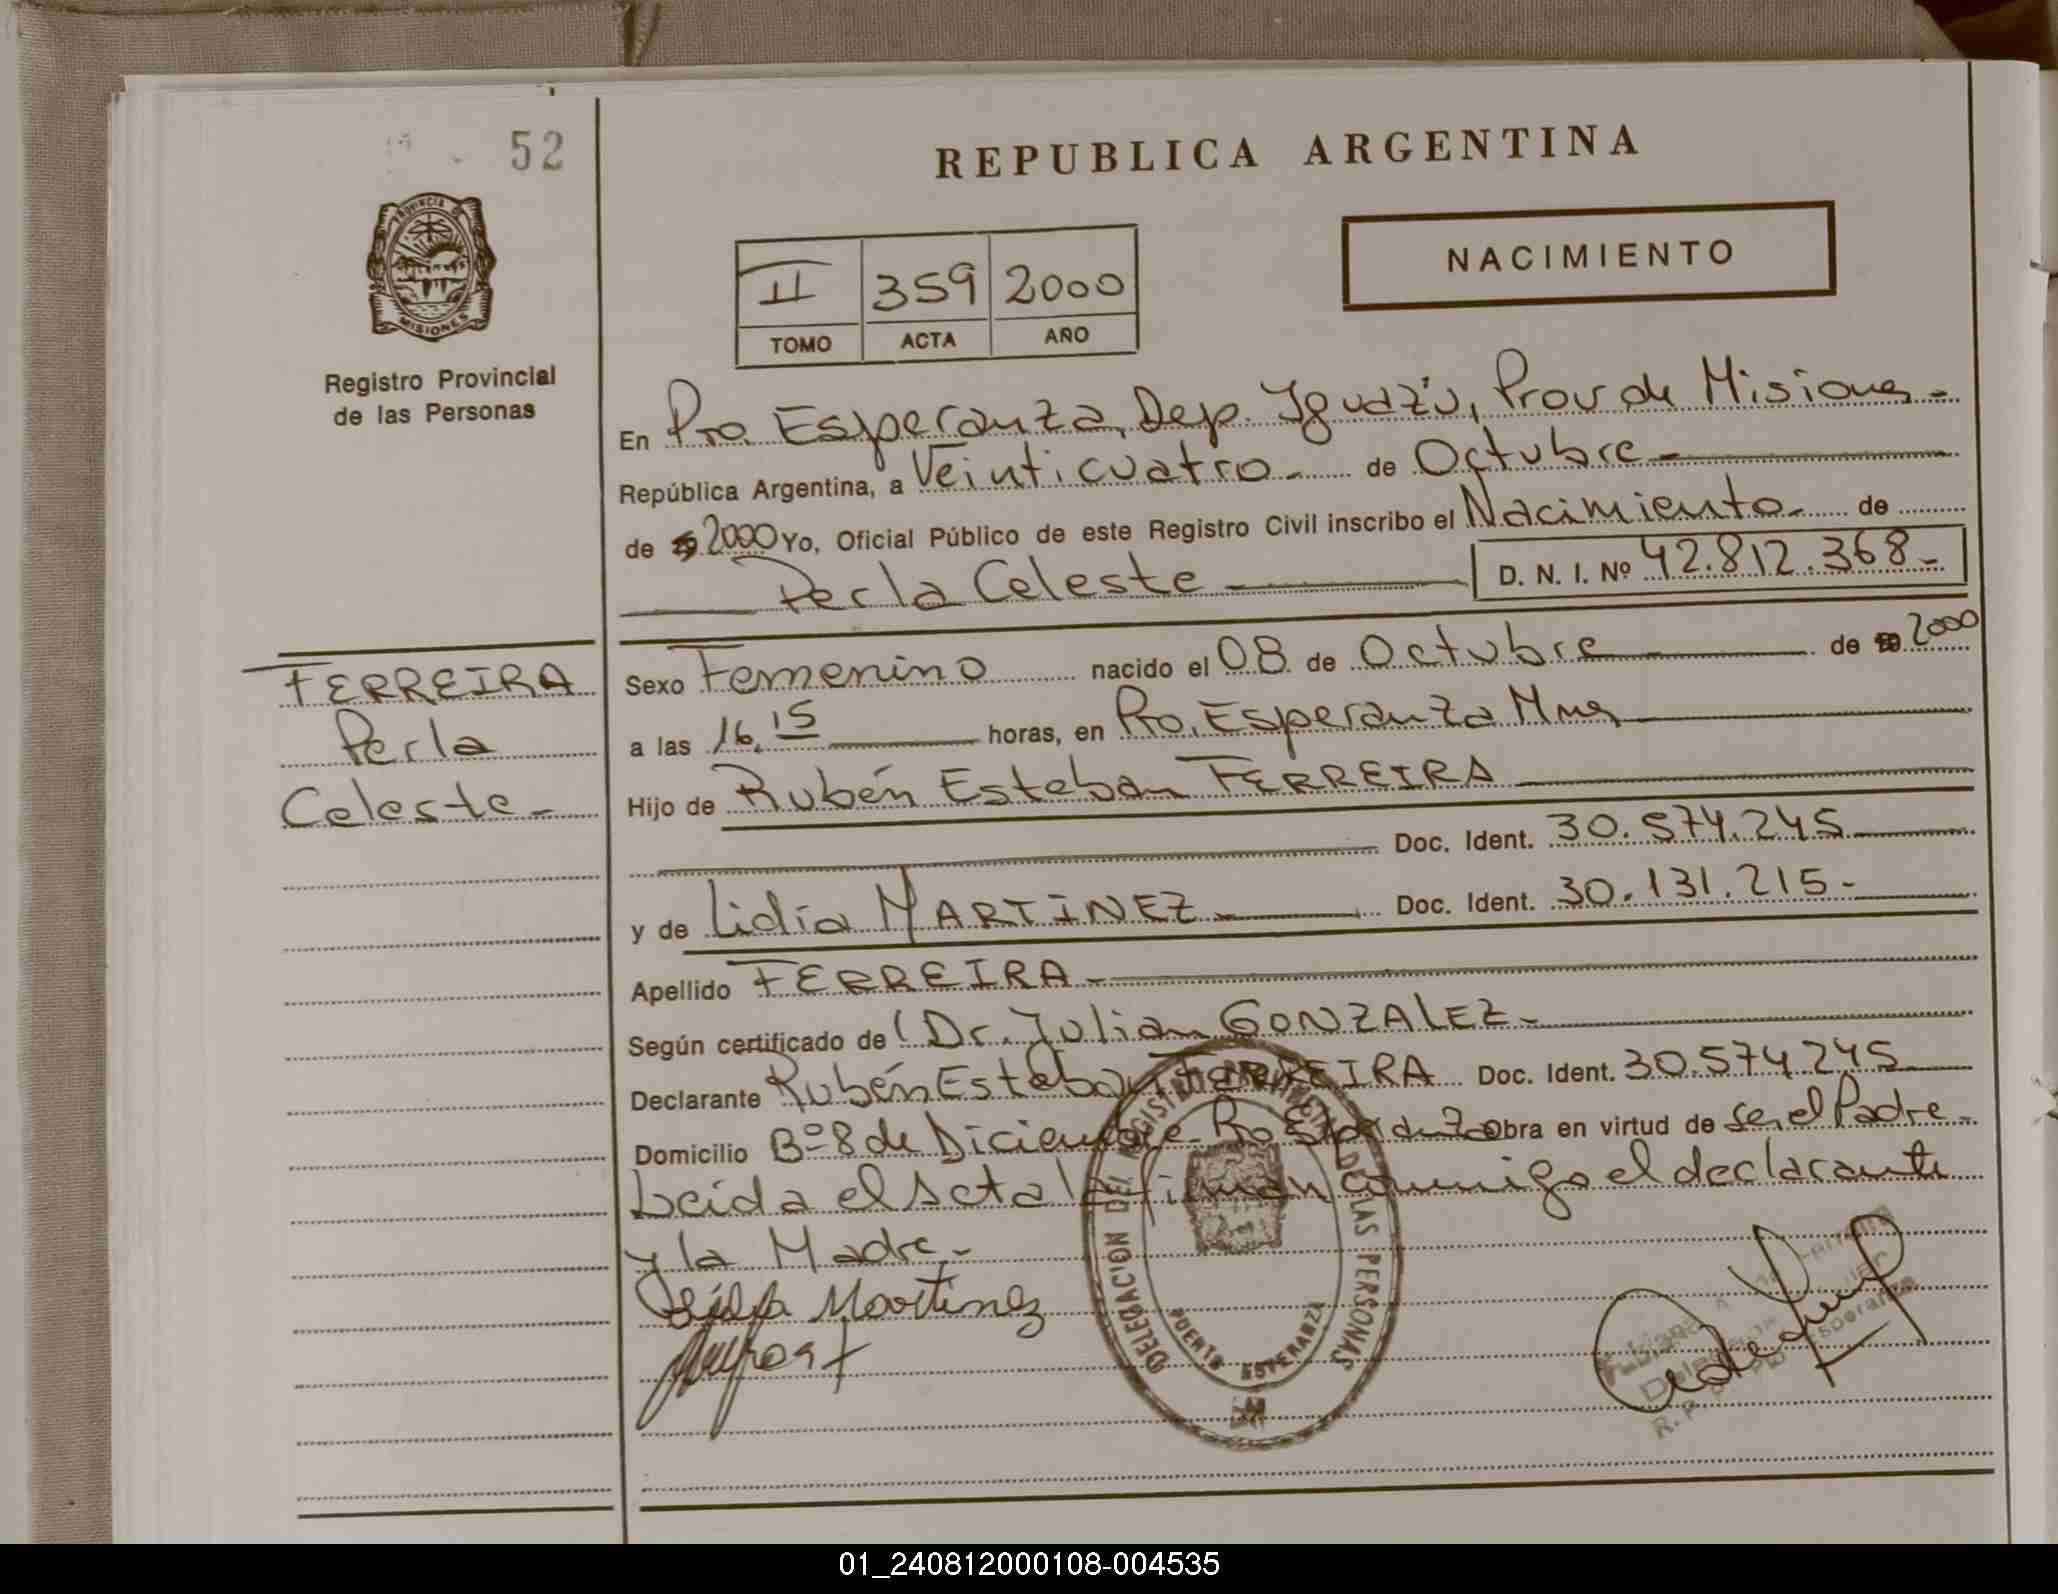 52
PROVINCIA DE
MISIONES
Registro Provincial
de las Personas
FERREIRA
Perla
Celeste-
REPUBLICA ARGENTINA
NACIMIENTO
II 359 2000
TOMO ACTA AÑO
En Pto. Esperanza, Dep. Iguazú, Prov de Misiones-
República Argentina, a Veinticuatro- de Octubre-
de 2000 Yo, Oficial Público de este Registro Civil inscribo el Nacimiento- de
Perla Celeste D. N. I. Nº 42.812.368-
Sexo Femenino nacido el 08 de Octubre de 2000
a las 16,15 horas, en Pto. Esperanza Mnes
Hijo de Rubén Esteban FERREIRA
Doc. Ident. 30.574.245
y de Lidia MARTINEZ- Doc. Ident. 30.131.215-
Apellido FERREIRA-
Según certificado de Dr. Julian GONZALEZ-
Declarante Rubén Esteban FERREIRA Doc. Ident. 30.574.245
Domicilio Bº 8 de Diciembre Pto Esperanza obra en virtud de ser el Padre-
Leida el acta la firman conmigo el declarante
y la Madre-
Martinez
DELEGACION DEL REGISTRO PROVINCIAL DE LAS PERSONAS
PUERTO ESPERANZA
01_240812000108-004535